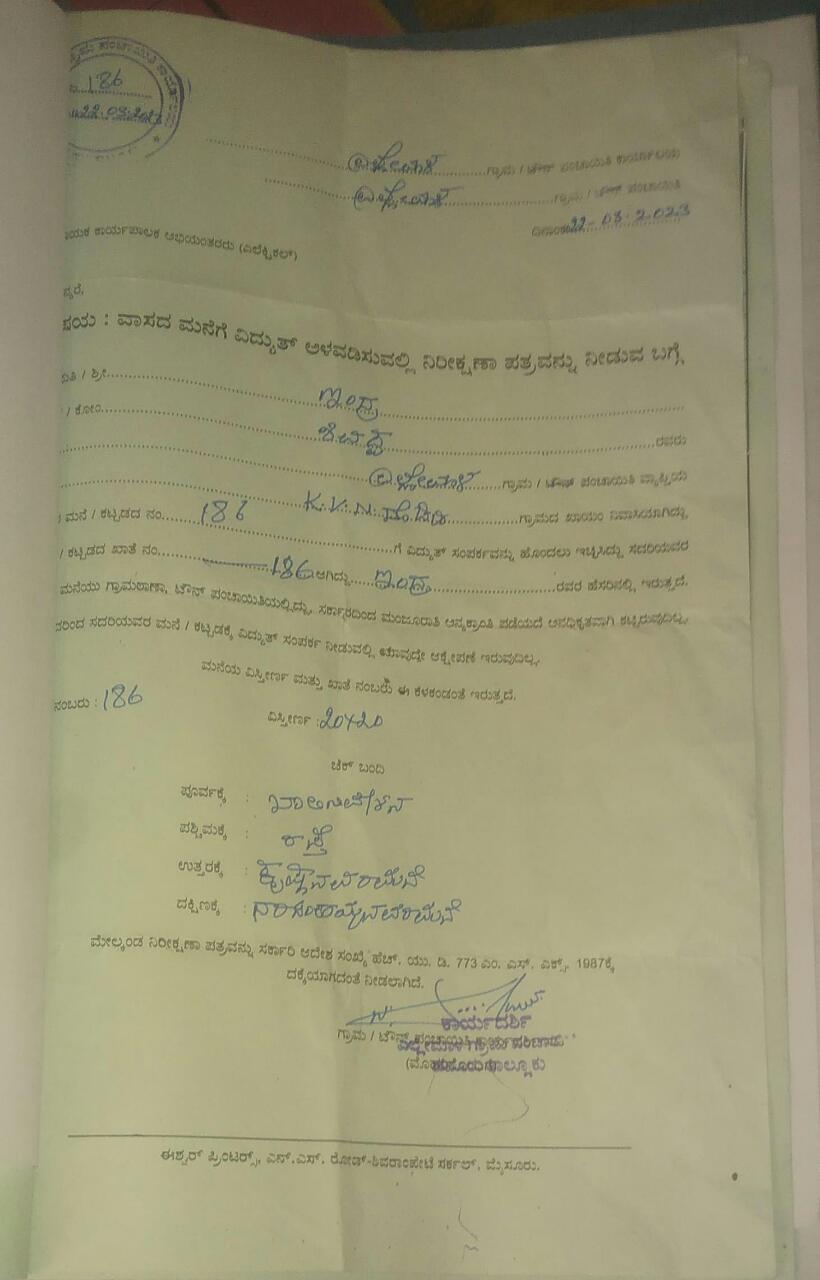 ಪಂಚಾಯಿತಿ
186
22-03-2023
ಗ್ರಾಮ / ಟೌನ್ ಪಂಚಾಯಿತಿ ಕಾರ್ಯಾಲಯ
ಗ್ರಾಮ / ಟೌನ್ ಪಂಚಾಯಿತಿ
ದಿನಾಂಕ 22-03-2023
ಯಕ ಕಾರ್ಯಪಾಲಕ ಅಭಿಯಂತರರು (ಎಲೆಕ್ಟ್ರಿಕಲ್)
ನ್ಯರೆ,
ಷಯ : ವಾಸದ ಮನೆಗೆ ವಿದ್ಯುತ್ ಅಳವಡಿಸುವಲ್ಲಿ ನಿರೀಕ್ಷಣಾ ಪತ್ರವನ್ನು ನೀಡುವ ಬಗ್ಗೆ
ಮತಿ / ಶ್ರೀ ಇಂದ್ರ
/ ಕೋಂ ರವರು
ಗ್ರಾಮ / ಟೌನ್ ಪಂಚಾಯಿತಿ ವ್ಯಾಪ್ತಿಯ
K.V.N. ಗ್ರಾಮದ ಖಾಯಂ ನಿವಾಸಿಯಾಗಿದ್ದು,
ಮನೆ / ಕಟ್ಟಡದ ನಂ. 186 ಗೆ ವಿದ್ಯುತ್ ಸಂಪರ್ಕವನ್ನು ಹೊಂದಲು ಇಚ್ಛಿಸಿದ್ದು ಸದರಿಯವರ
/ ಕಟ್ಟಡದ ಖಾತೆ ನಂ. 186 ಆಗಿದ್ದು ಇಂದ್ರ ರವರ ಹೆಸರಿನಲ್ಲಿ ಇರುತ್ತದೆ.
ಮನೆಯು ಗ್ರಾಮಠಾಣಾ, ಟೌನ್ ಪಂಚಾಯಿತಿಯಲ್ಲಿದ್ದು, ಸರ್ಕಾರದಿಂದ ಮಂಜೂರಾತಿ ಅನ್ಯಕ್ರಾಂತಿ ಪಡೆಯದೆ ಅನಧಿಕೃತವಾಗಿ ಕಟ್ಟಿರುವುದಿಲ್ಲ.
ದರಿಂದ ಸದರಿಯವರ ಮನೆ / ಕಟ್ಟಡಕ್ಕೆ ವಿದ್ಯುತ್ ಸಂಪರ್ಕ ನೀಡುವಲ್ಲಿ ಯಾವುದೇ ಆಕ್ಷೇಪಣೆ ಇರುವುದಿಲ್ಲ.
ಮನೆಯ ವಿಸ್ತೀರ್ಣ ಮತ್ತು ಖಾತೆ ನಂಬರು ಈ ಕೆಳಕಂಡಂತೆ ಇರುತ್ತದೆ.
ನಂಬರು : 186
ವಿಸ್ತೀರ್ಣ : 20x20
ಚೆಕ್ ಬಂದಿ
ಪೂರ್ವಕ್ಕೆ : ಖಾಲಿನಿವೇಶನ
ಪಶ್ಚಿಮಕ್ಕೆ : ರಸ್ತೆ
ಉತ್ತರಕ್ಕೆ :
ದಕ್ಷಿಣಕ್ಕೆ :
ಮೇಲ್ಕಂಡ ನಿರೀಕ್ಷಣಾ ಪತ್ರವನ್ನು ಸರ್ಕಾರಿ ಆದೇಶ ಸಂಖ್ಯೆ ಹೆಚ್. ಯು. ಡಿ. 773 ಎಂ. ಎಸ್. ಎಕ್ಸ್. 1987ಕ್ಕೆ
ದಕ್ಕೆಯಾಗದಂತೆ ನೀಡಲಾಗಿದೆ.
ಕಾರ್ಯದರ್ಶಿ
ಗ್ರಾಮ / ಟೌನ್
ತಾಲ್ಲೂಕು
ಈಶ್ವರ್ ಪ್ರಿಂಟರ್ಸ್, ಎನ್.ಎಸ್. ರೋಡ್-ಶಿವರಾಂಪೇಟೆ ಸರ್ಕಲ್, ಮೈಸೂರು.